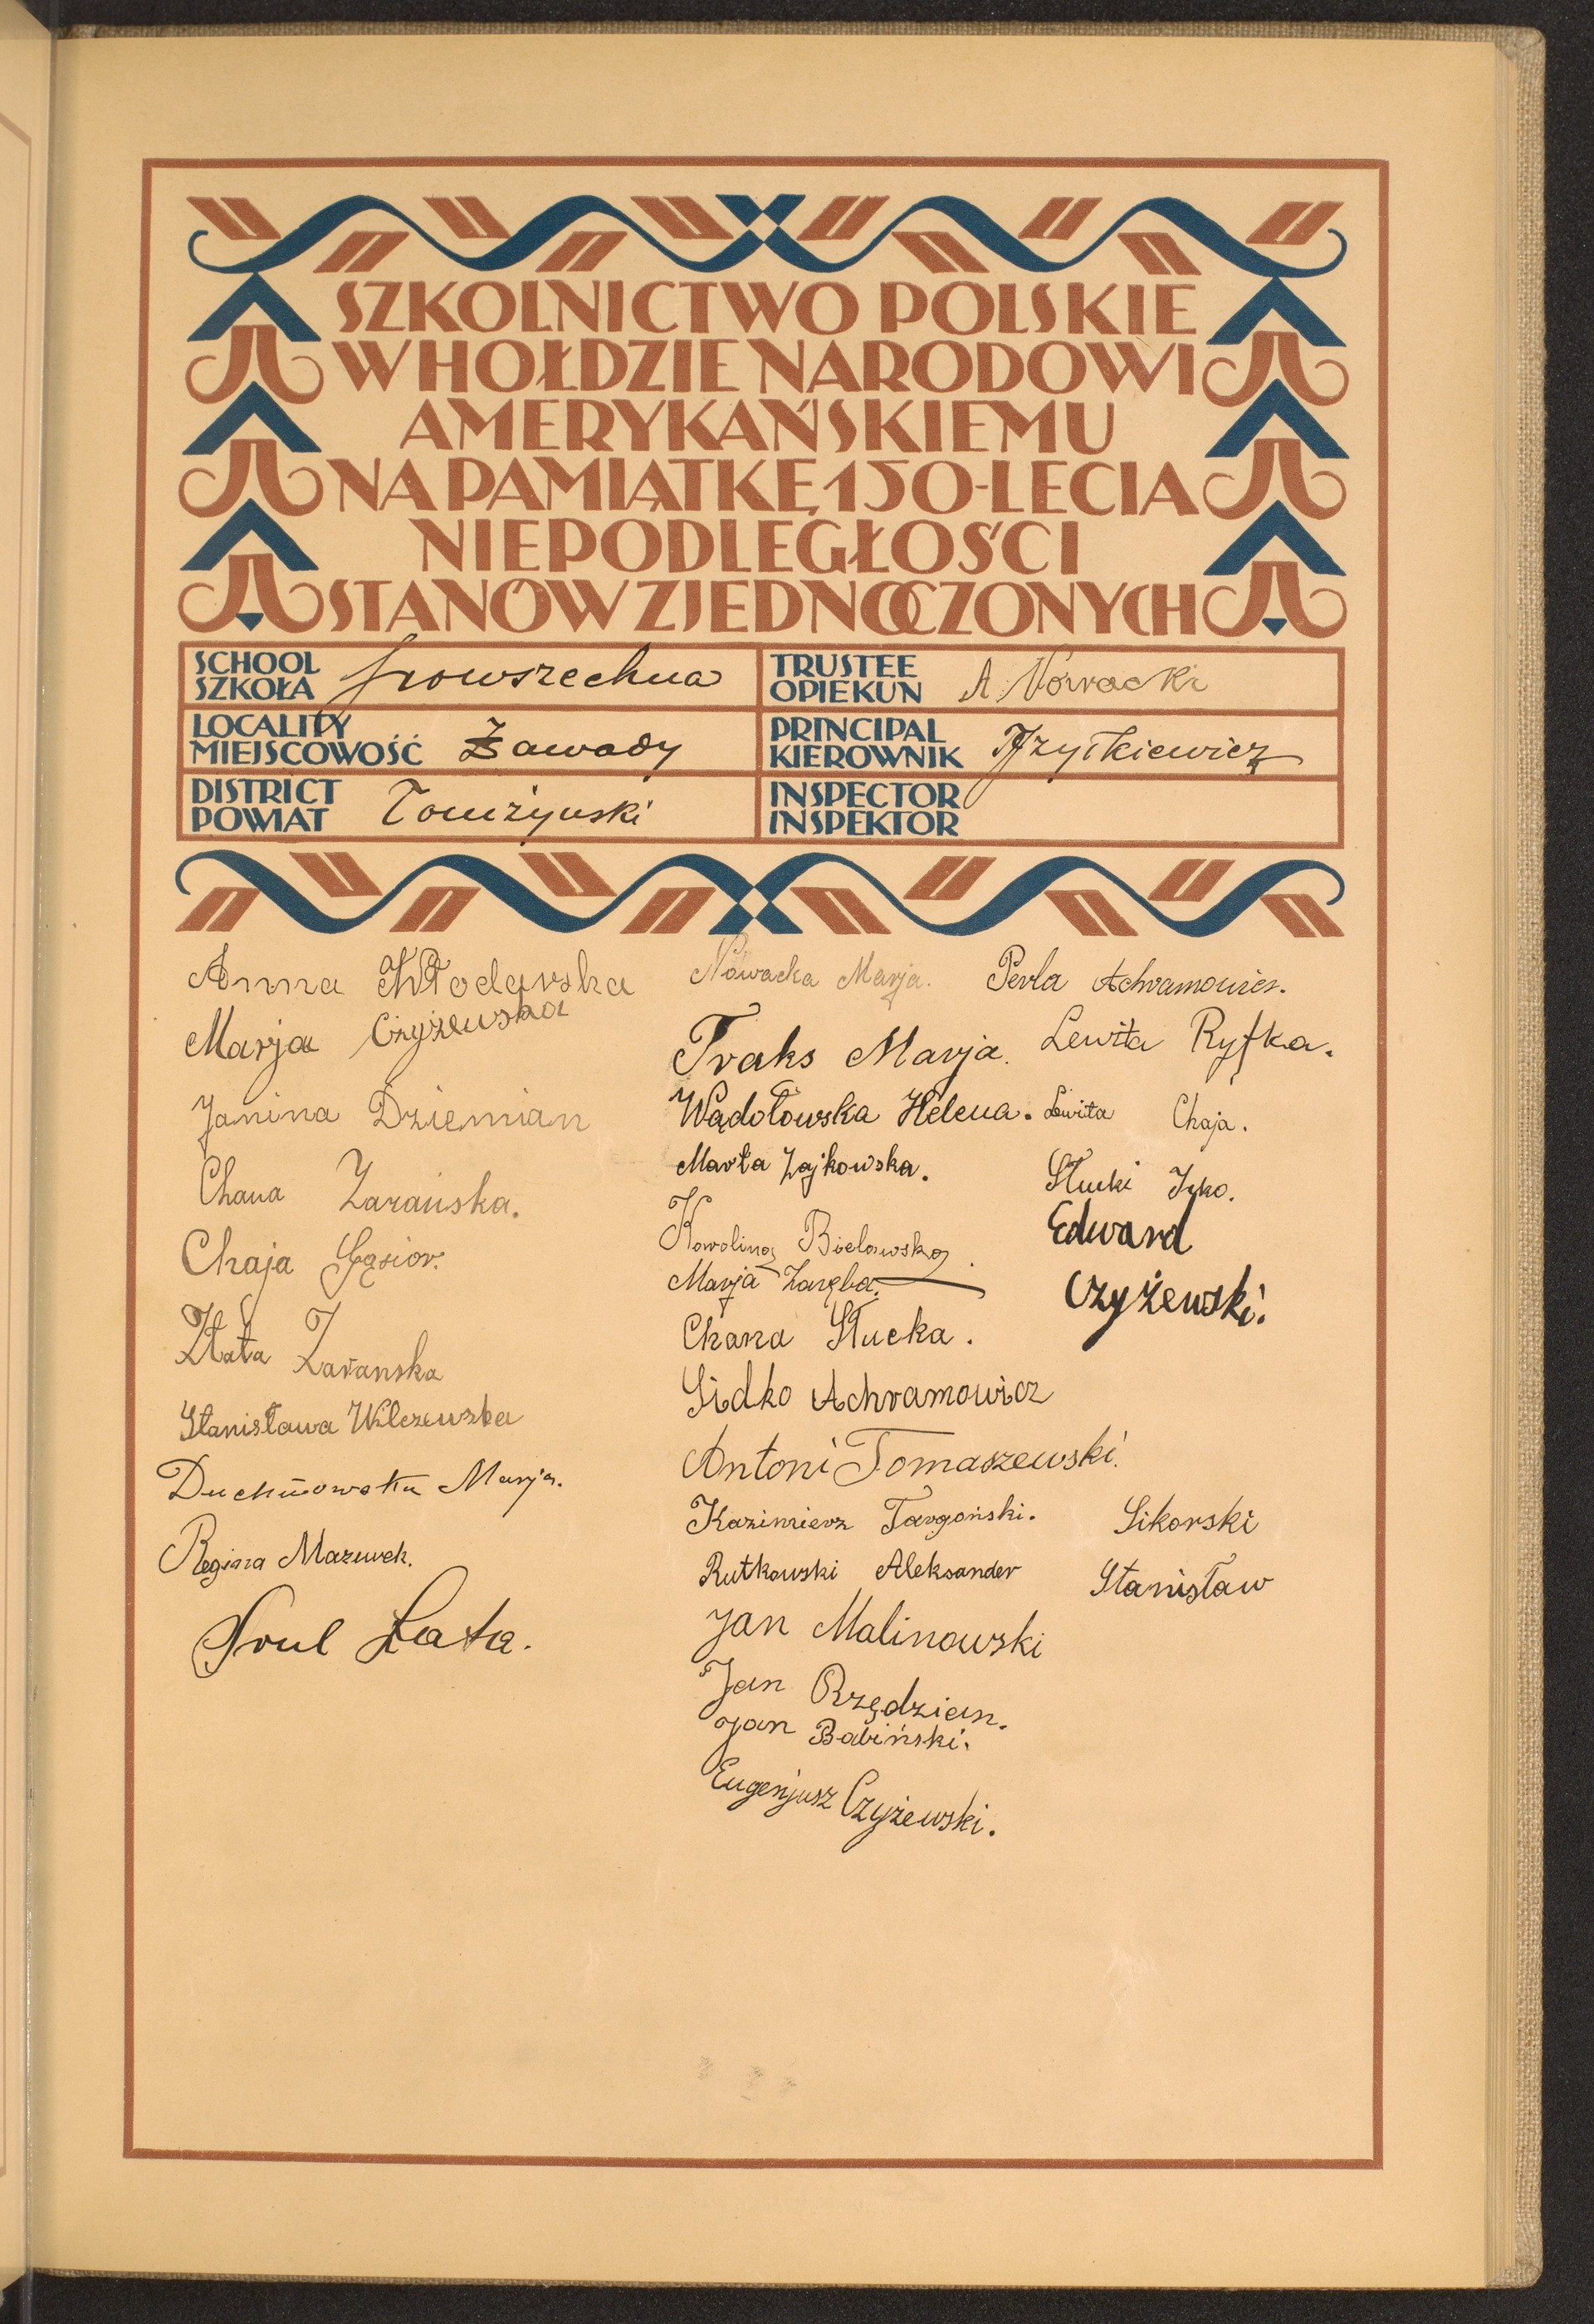 SZKOLNICTWO POLSKIE
W HOŁDZIE NARODOWI
AMERYKAŃSKIEMU
NA PAMIĄTKĘ 150-LECIA
NIEPODLEGŁOŚCI
STANÓW ZJEDNOCZONYCH
SCHOOL
SZKOŁA powszechna
TRUSTEE
OPIEKUN A. Nowacki
LOCALITY
MIEJSCOWOŚĆ Zawady
PRINCIPAL
KIEROWNIK
DISTRICT
POWIAT Łomżyński
INSPECTOR
INSPEKTOR
Anna
Marja Czyżewska
Janina Dziemian
Chana Zarańska.
Chaja Gąsior.
Złata Zaranska
Stanisława Wilczewska
Marja.
Regina Mazurek.
Srul Łata.
Nowacka Marja.
Traks Marja.
Wądołowska Helena.
Marta Zajkowska.
Karolina Bielawska.
Marja Zaręba.
Chana Słucka.
Sidko Achramowicz
Antoni Tomaszewski.
Kazimierz Targoński.
Rutkowski Aleksander
Jan Malinowski
Jan Rzędzian.
Jan Babiński.
Eugenjusz Czyżewski.
Perla Achramowicz.
Lewita Ryfka.
Lewita Chaja.
Słucki Icko.
Edward
Czyżewski.
Sikorski
Stanisław